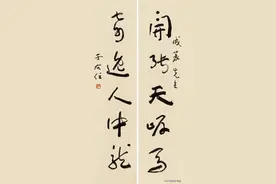 開張天岸馬
先生
奇逸人中龍
于右任